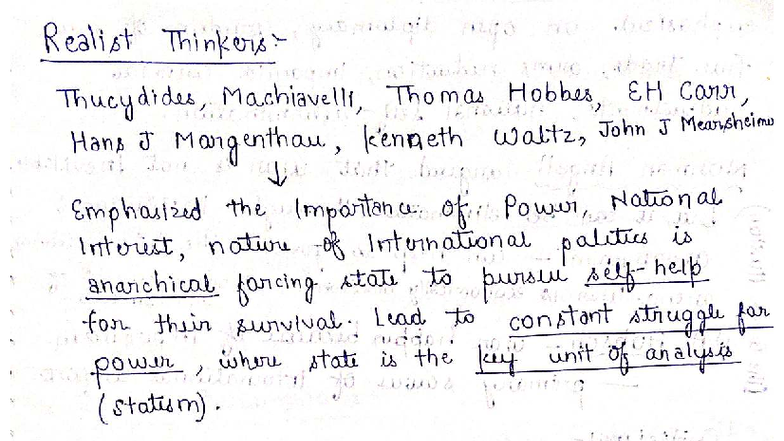 Realist Thinkers:-
Thucydides, Machiavelli, Thomas Hobbes, EH Carr,
Hans J Morgenthau, Kenneth Waltz, John J Mearsheimer
↓
Emphasized the Importance of Power, National
Interest, nature of International politics is
anarchical forcing state to pursue self-help
for their survival. Lead to constant struggle for
power, where state is the key unit of analysis
(statism).